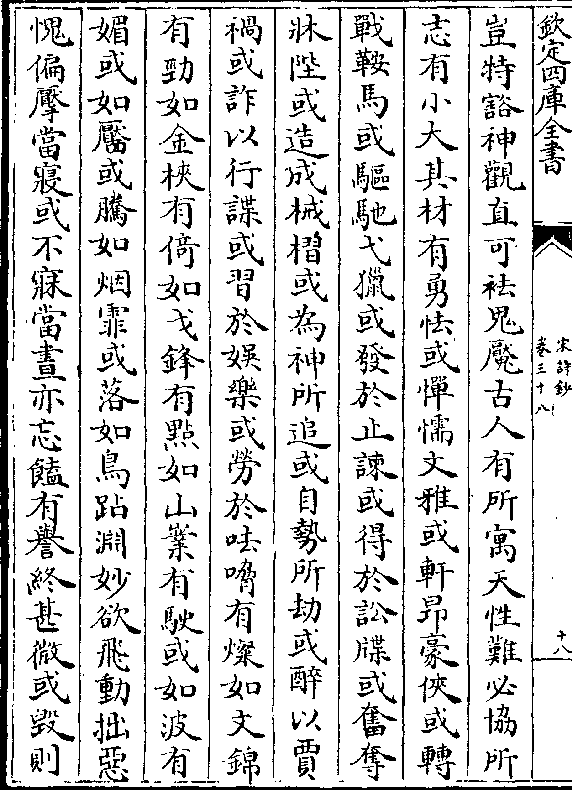 欽定四庫全書
宋詩鈔
卷三十八
十八
豈特豁神觀直可祛鬼魘古人有所寓天性難必協所
志有小大其材有勇怯或憚懦文雅或軒昂豪俠或轉
戰鞍馬或驅馳弋獵或發於止諫或得於訟牒或奮奪
牀陛或造成械槢或為神所追或自勢所劫或醉以賈
禍或詐以行諜或習於娛樂或勞於呿嗋有燦如文錦
有勁如金梜有倚如戈鋒有點如山嶪有駛或如波有
媚或如靨或騰如烟霏或落如鳥跕淵妙欲飛動拙惡
愧偏擪當寢或不寐當晝亦忘饁有譽終甚微或毀則